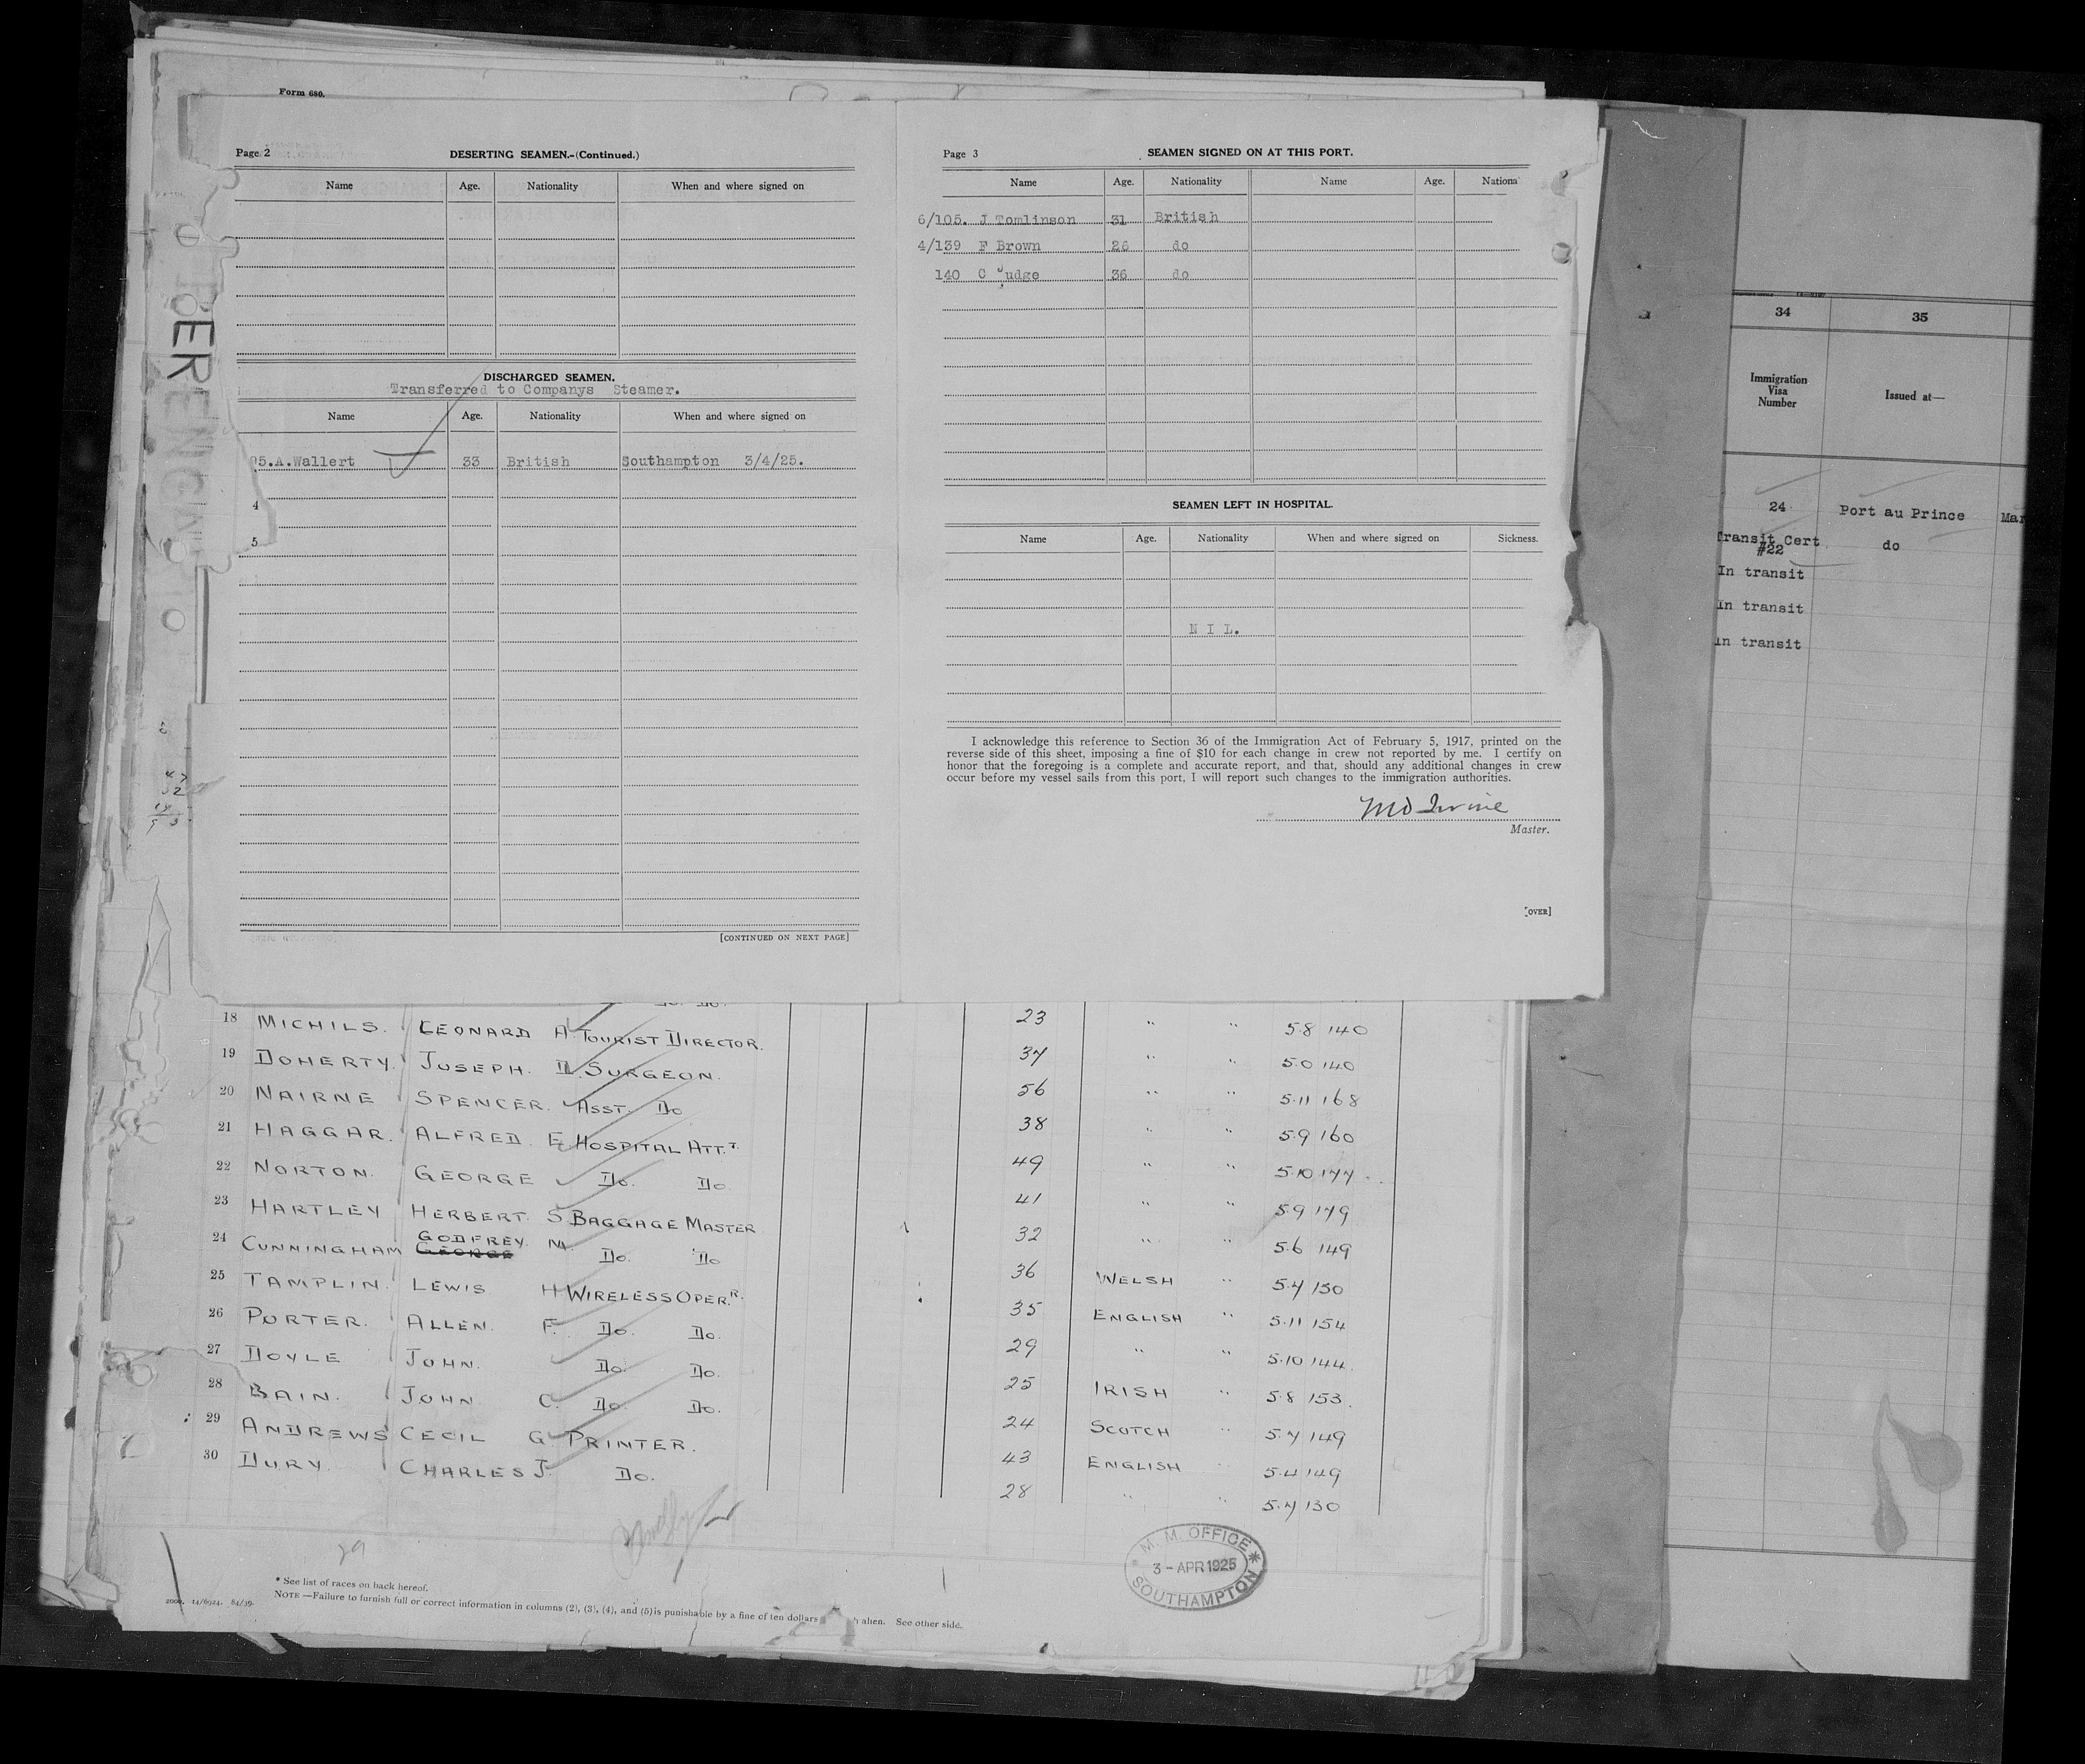 Form 680.
Page 2 DESERTING SEAMEN.-(Continued.)
Name Age. Nationality When and where signed on
DISCHARGED SEAMEN.
Transferred to Companys Steamer.
Name Age. Nationality When and where signed on
95.A.Wallert 33 British Southampton 3/4/25.
4
5
[CONTINUED ON NEXT PAGE]
Page 3 SEAMEN SIGNED ON AT THIS PORT.
Name Age. Nationality Name Age. Nationa
6/105. J Tomlinson 31 British
4/139 F Brown 26 do
140 C Judge 36 do
SEAMEN LEFT IN HOSPITAL.
Name Age. Nationality When and where signed on Sickness.
N I L.
I acknowledge this reference to Section 36 of the Immigration Act of February 5, 1917, printed on the
reverse side of this sheet, imposing a fine of $10 for each change in crew not reported by me. I certify on
honor that the foregoing is a complete and accurate report, and that, should any additional changes in crew
occur before my vessel sails from this port, I will report such changes to the immigration authorities.
Master.
[OVER]
ERENGA
34 35
Immigration
Visa
Number
Issued at—
24 Port au Prince Mar
Transit Cert do
#22
In transit
In transit
in transit
Do. Do.
18 MICHILS. LEONARD A TOURIST DIRECTOR. 23 " " 5.8 140
19 DOHERTY. JOSEPH. D. SURGEON. 37 " " 5.0 140
20 NAIRNE SPENCER. ASST. DO 56 " " 5.11 168
21 HAGGAR. ALFRED. E HOSPITAL ATTT. 38 " " 5.9 160
22 NORTON. GEORGE DO. DO 49 " " 5.10 177
23 HARTLEY HERBERT. S BAGGAGE MASTER 41 " " 5.9 179
24 CUNNINGHAM GODFREY. M. DO. DO 32 " " 5.6 149
GEORGE
25 TAMPLIN. LEWIS H WIRELESS OPER.R. 36 WELSH " 5.7 130
26 PORTER. ALLEN. F. DO. DO. 35 ENGLISH " 5.11 154
27 DOYLE JOHN. DO. DO. 29 " " 5.10 144.
28 BAIN. JOHN C. DO. DO. 25 IRISH " 5.8 153.
29 ANDREWS CECIL G PRINTER. 24 SCOTCH " 5.7 149
30 DURY. CHARLES J. DO. 43 ENGLISH " 5.4 149
28 " " 5.7 130
29
M. M. OFFICE
3 - APR 1925
SOUTHAMPTON
* See list of races on back hereof.
2000. 14/6924. 84/39.
NOTE —Failure to furnish full or correct information in columns (2), (3), (4), and (5) is punishable by a fine of ten dollars h alien. See other side.